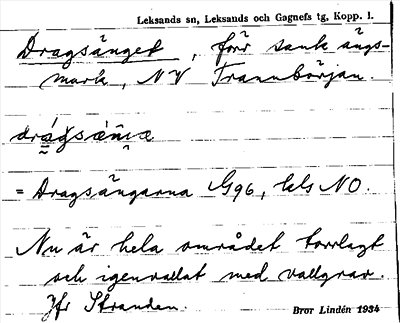 Leksands sn, Leksands och Gagnefs tg, Kopp. l.
Dragsänget, förr sank ängs-
mark, NV Trannbörjan.
= Dragsängarna G96, kls NO.
Nu är hela området torrlagt
och igenvallat med vallgräs.
Jfr Stranden.
Bror Lindén 1934